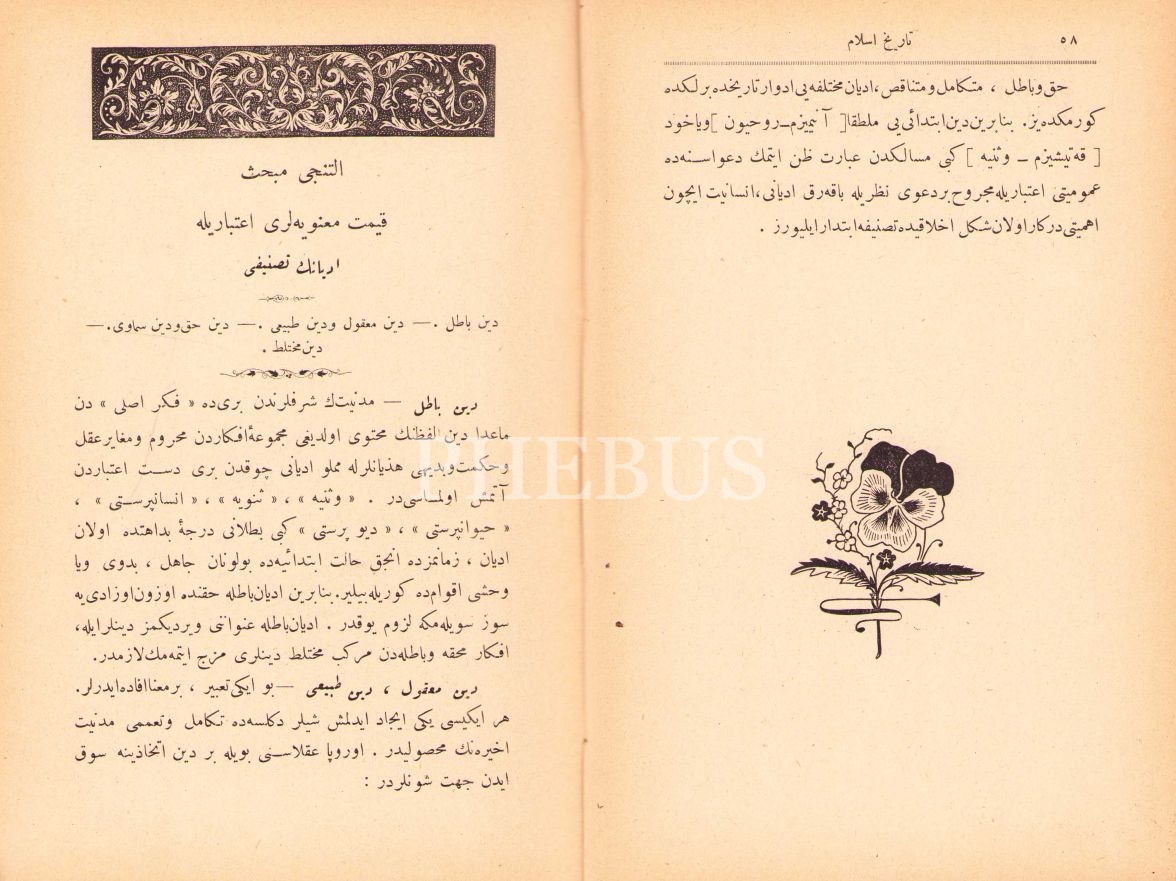 ٥٨
تاریخ اسلام
حق وباطل ، متکامل ومتناقص ، ادیان مختلفه یی ادوار تاریخده برلکده
کورمکده یز. بنابرین دین ابتدائی یی مطلقا [ آنیمیزم ـ روحیون ] ویاخود
[ فه تیشیزم ـ وثنیه ] کبی مسالکدن عبارت ظن ایتمك دعواسنه ده
عمومیتی اعتباریله مجروح بر دعوی نظریله باقه رق ادیانی ، انسانیت ایچون
اهمیتی درکار اولان شکل اخلاقیده تصنیفه ابتدار ایلیورز .
التنجی مبحث
قیمت معنویه لری اعتباریله
ادیانك تصنیفی
دین باطل . — دین معقول ودین طبیعی . — دین حق ودین سماوی . —
دین مختلط .
دین باطل — مدنیتك شرفلرندن بری ده « فکر اصلی » دن
ماعدا دین لفظنك محتوی اولدیغی مجموعهٔ افکاردن محروم ومغایر عقل
وحکمت وبدیهی هذیانلرله مملو ادیانی چوقدن بری دست اعتباردن
آتمش اولماسی در . « وثنیه » ، « ثنویه » ، « انسانپرستی » ،
« حیوانپرستی » ، « دیو پرستی » کبی بطلانی درجهٔ بداهتده اولان
ادیان ، زمانمزده انجق حالت ابتدائیه ده بولونان جاهل ، بدوی ویا
وحشی اقوام ده کوریله بیلیر. بنابرین ادیان باطله حقنده اوزون اوزادی یه
سوز سویله مکه لزوم یوقدر . ادیان باطله عنواننی ویردیکمز دینلرایله ،
افکار محقه وباطله دن مرکب مختلط دینلری مزج ایتمه مك لازمدر.
دین معقول ، دین طبیعی — بو ایکی تعبیر ، بر معنا افاده ایدرلر.
هر ایکیسی یکی ایجاد ایدلمش شیلر دکلسه ده تکامل وتعممی مدنیت
اخیره نك محصولیدر . اوروپا عقلاسنی بویله بر دین اتخاذینه سوق
ایدن جهت شونلردر :
PHEBUS